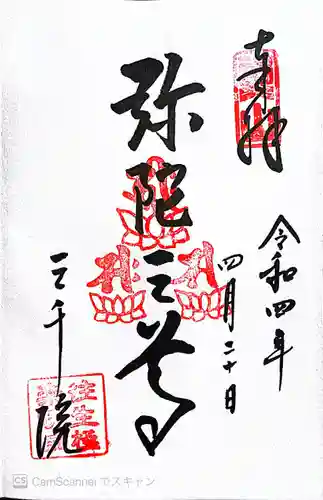 奉拝
令和四年
四月二十日
弥陀三尊
三千院
往生極
CS CamScanner でスキャン